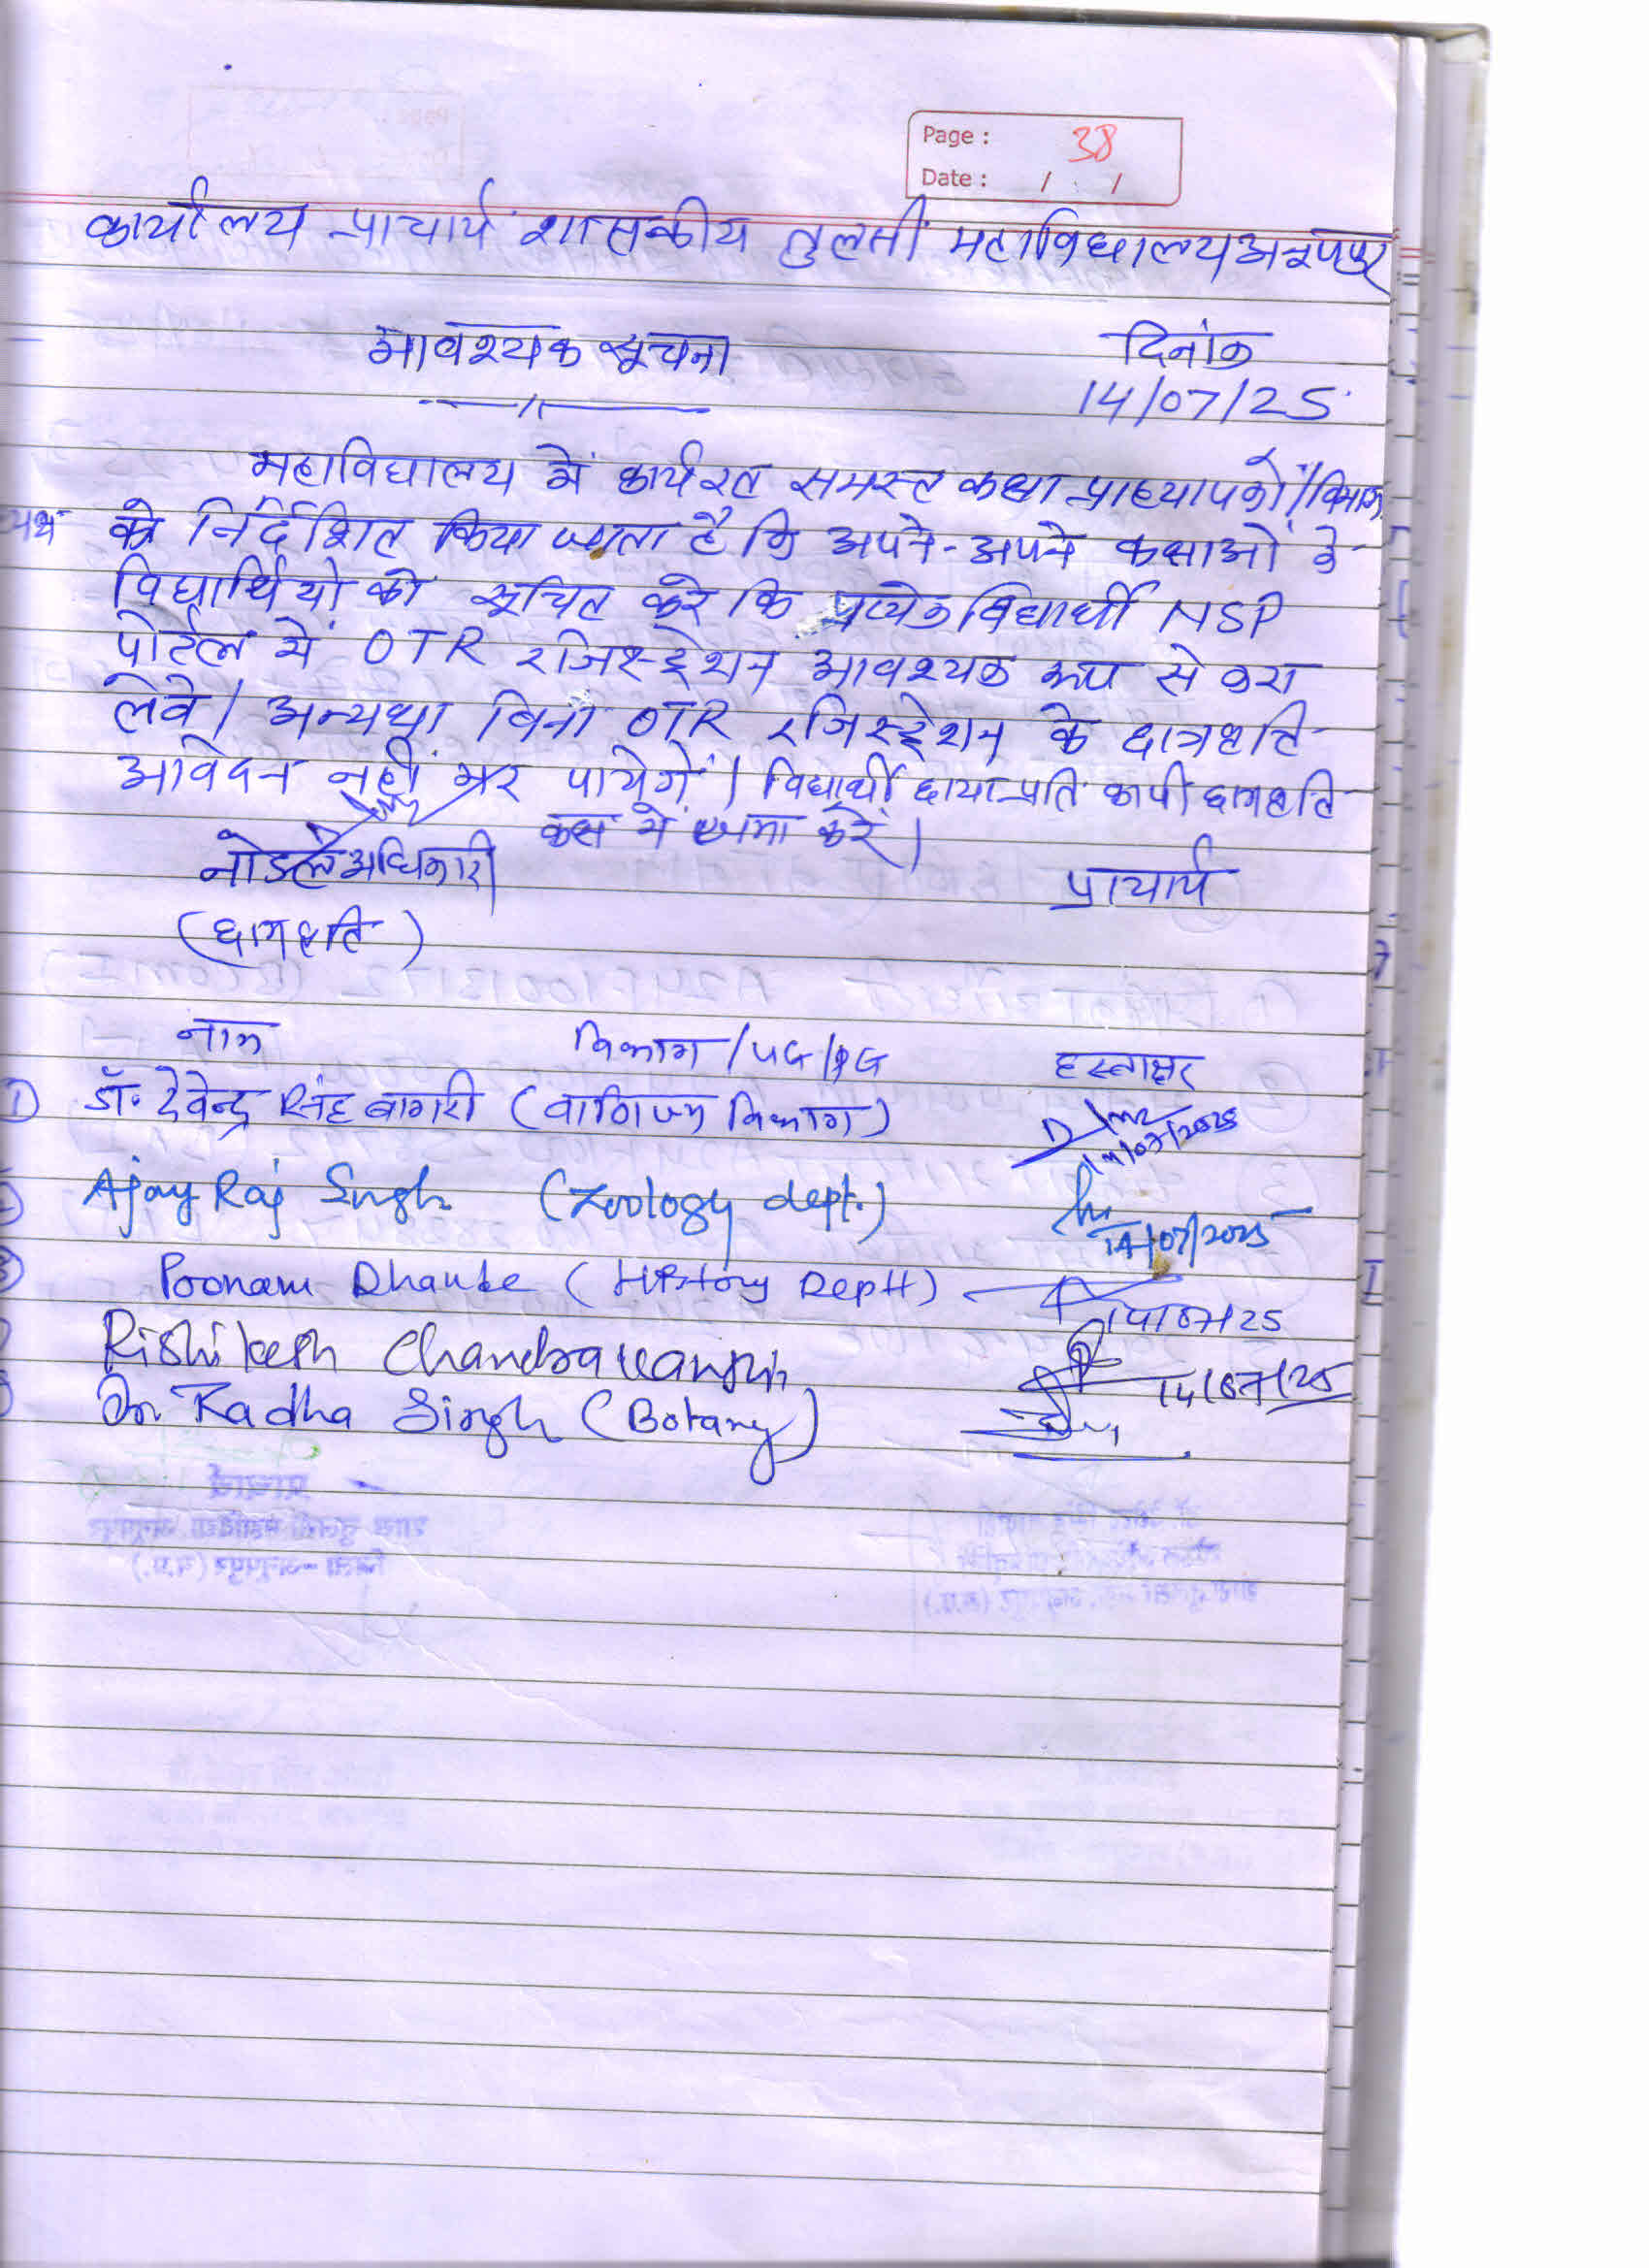 Page : 38
Date : / /
कार्यालय प्राचार्य शासकीय तुलसी महाविद्यालय अनूपपुर
आवश्यक सूचना
दिनांक
14/07/25
महाविद्यालय में कार्यरत समस्त कक्षा प्राध्यापकों/विभाग
को निर्देशित किया जाता है कि अपने-अपने कक्षाओं के
विद्यार्थियो को सूचित करे कि प्रत्येक विद्यार्थी NSP
पोर्टल में OTR रजिस्ट्रेशन आवश्यक रूप से करा
लेवे। अन्यथा बिना OTR रजिस्ट्रेशन के छात्रवृत्ति
आवेदन नहीं भर पायेगें। विद्यार्थी छायाप्रति कापी छात्रवृत्ति
कक्ष में जमा करें।
नोडल अधिकारी
(छात्रवृत्ति)
प्राचार्य
नाम विभाग/UG/PG हस्ताक्षर
1) डॉ. देवेन्द्र सिंह बागरी (वाणिज्य विभाग) 14/07/2025
Ajay Raj Singh (Zoology dept.) 14/07/2025
Poonam Dhande (History Deptt) 14/07/25
Rishikesh Chandravanshi 14/07/25
Dr. Radha Singh (Botany)